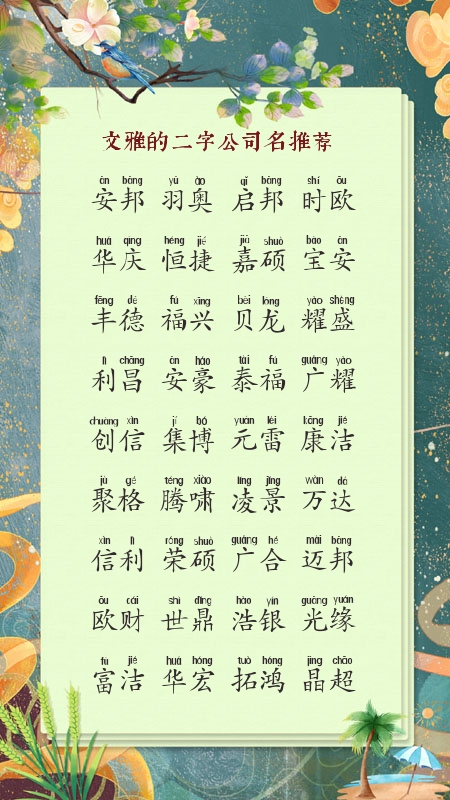 文雅的二字公司名推荐
ān bāng yǔ ào qǐ bāng shí ōu
安邦 羽奥 启邦 时欧
huá qìng héng jié jiā shuò bǎo ān
华庆 恒捷 嘉硕 宝安
fēng dé fú xīng bèi lóng yào shèng
丰德 福兴 贝龙 耀盛
lì chāng ān háo tài fú guǎng yào
利昌 安豪 泰福 广耀
chuàng xìn jí bó yuán léi kāng jié
创信 集博 元雷 康洁
jù gé téng xiào líng jǐng wàn dá
聚格 腾啸 凌景 万达
xìn lì róng shuò guǎng hé mài bāng
信利 荣硕 广合 迈邦
ōu cái shì dǐng hào yín guāng yuán
欧财 世鼎 浩银 光缘
fù jié huá hóng tuò hóng jīng chāo
富洁 华宏 拓鸿 晶超